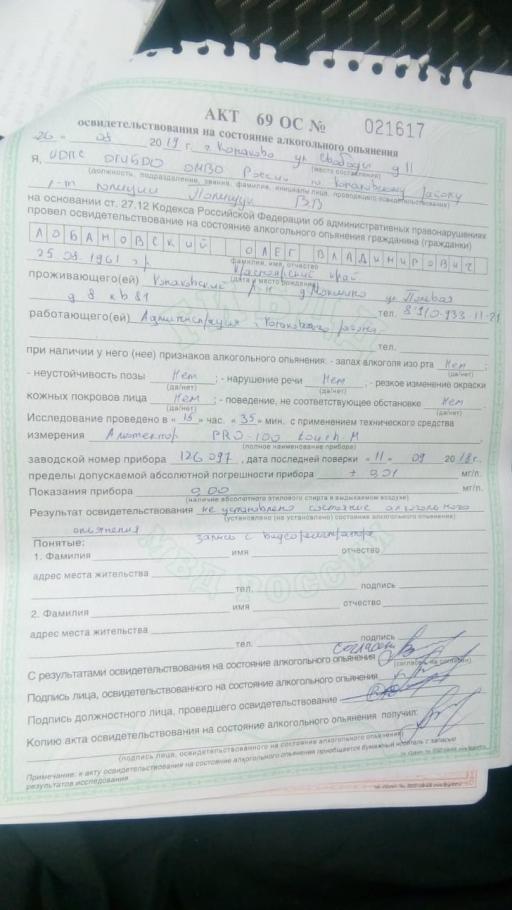 АКТ 69 ОС № 021617
освидетельствования на состояние алкогольного опьянения
26 " 08 2019 г. г. Конаково ул Свободы д 11
(место составления)
Я, ИДПС ОГИБДД ОМВД России по Конаковскому району
(должность, подразделение, звание, фамилия, инициалы лица, проводящего освидетельствование)
л-т полиции Полищук В.В
на основании ст. 27.12 Кодекса Российской Федерации об административных правонарушениях
провел освидетельствование на состояние алкогольного опьянения гражданина (гражданки)
ЛОБАНОВСКИЙ ОЛЕГ ВЛАДИМИРОВИЧ
фамилия, имя, отчество
25.08.1961 г.р Красноярский край
(дата и место рождения)
проживающего(ей) Конаковский р-н д ул Полевая
д 8 кв 81 тел. 8 910-933-11-21
работающего(ей) Администрация Конаковского района
тел.
при наличии у него (нее) признаков алкогольного опьянения: - запах алкоголя изо рта Нет ;
(да/нет)
- неустойчивость позы Нет ; - нарушение речи Нет ; - резкое изменение окраски
(да/нет) (да/нет)
кожных покровов лица Нет ; - поведение, не соответствующее обстановке Нет .
(да/нет) (да/нет)
Исследование проведено в « 15 » час. « 35 » мин. с применением технического средства
измерения Алкотектор PRO-100 touch-M
(полное наименование прибора)
заводской номер прибора 126097 , дата последней поверки « 11 » 09 2018 г.
пределы допускаемой абсолютной погрешности прибора ± 0,01 мг/л.
Показания прибора 0,00 мг/л.
(наличие абсолютного этилового спирта в выдыхаемом воздухе)
Результат освидетельствования не установлено состояние алкогольного
(установлено (не установлено) состояние алкогольного опьянения)
опьянения
Понятые: запись с видеорегистратора
1. Фамилия имя отчество
адрес места жительства
тел. подпись
2. Фамилия имя отчество
адрес места жительства
тел. подпись
С результатами освидетельствования на состояние алкогольного опьянения согласен
(согласен, не согласен)
Подпись лица, освидетельствованного на состояние алкогольного опьянения
Подпись должностного лица, проведшего освидетельствование
Копию акта освидетельствования на состояние алкогольного опьянения получил:
(подпись лица, освидетельствованного на состояние алкогольного опьянения)
Примечание: к акту освидетельствования на состояние алкогольного опьянения приобщается бумажный носитель с записью
результатов исследования
МВД РОССИИ